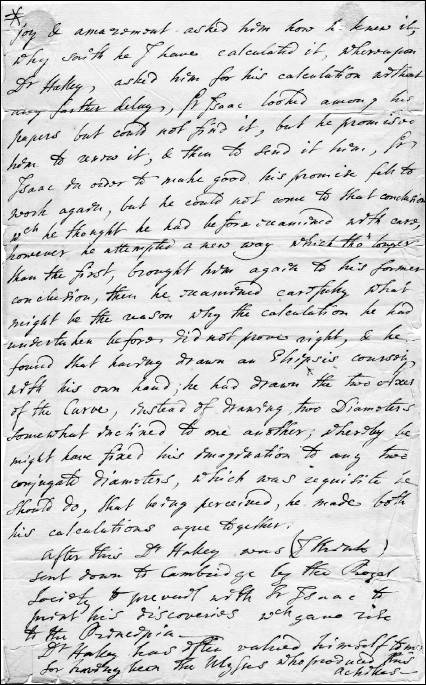 *
joy & amazement asked him how he knew it,
why saith he I have calculated it, whereupon
Dr Halley, asked him for his calculation without
any farther delay, Sr Isaac looked among his
papers but could not find it, but he promised
him to renew it, & then to send it him, Sr
Isaac in order to make good his promise fell to
work again, but he could not come to that conclusion
wch he thought he had before examined with care,
however he attempted a new way which tho' longer
than the first, brought him again to his former
conclusion, then he examined carefully what
might be the reason why the calculation he had
undertaken before did not prove right, & he
found that having drawn an Elipsis coursely
with his own hand, he had drawn the two Axes
of the Curve, instead of drawing two Diameters
somewhat inclined to one another, whereby he
might have fixed his imagination to any two
conjugate diameters, which was requisite he
should do, that being perceived, he made both
his calculations agree together.
After this Dr Halley was (I think)
sent down to Cambridge by the Royal
Society to prevail with Sr Isaac to
print his discoveries wch gave rise
to the Principia-
Dr Halley has often valued himself to me
for having been the Ulysses who produced this
Achilles-